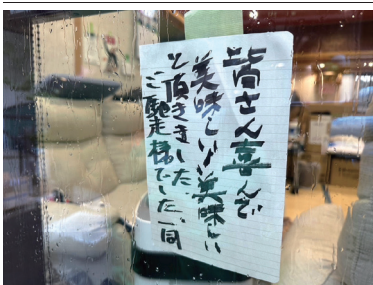 皆さん喜んで
美味しい美味しい
と頂きました
ご馳走様でした、一同